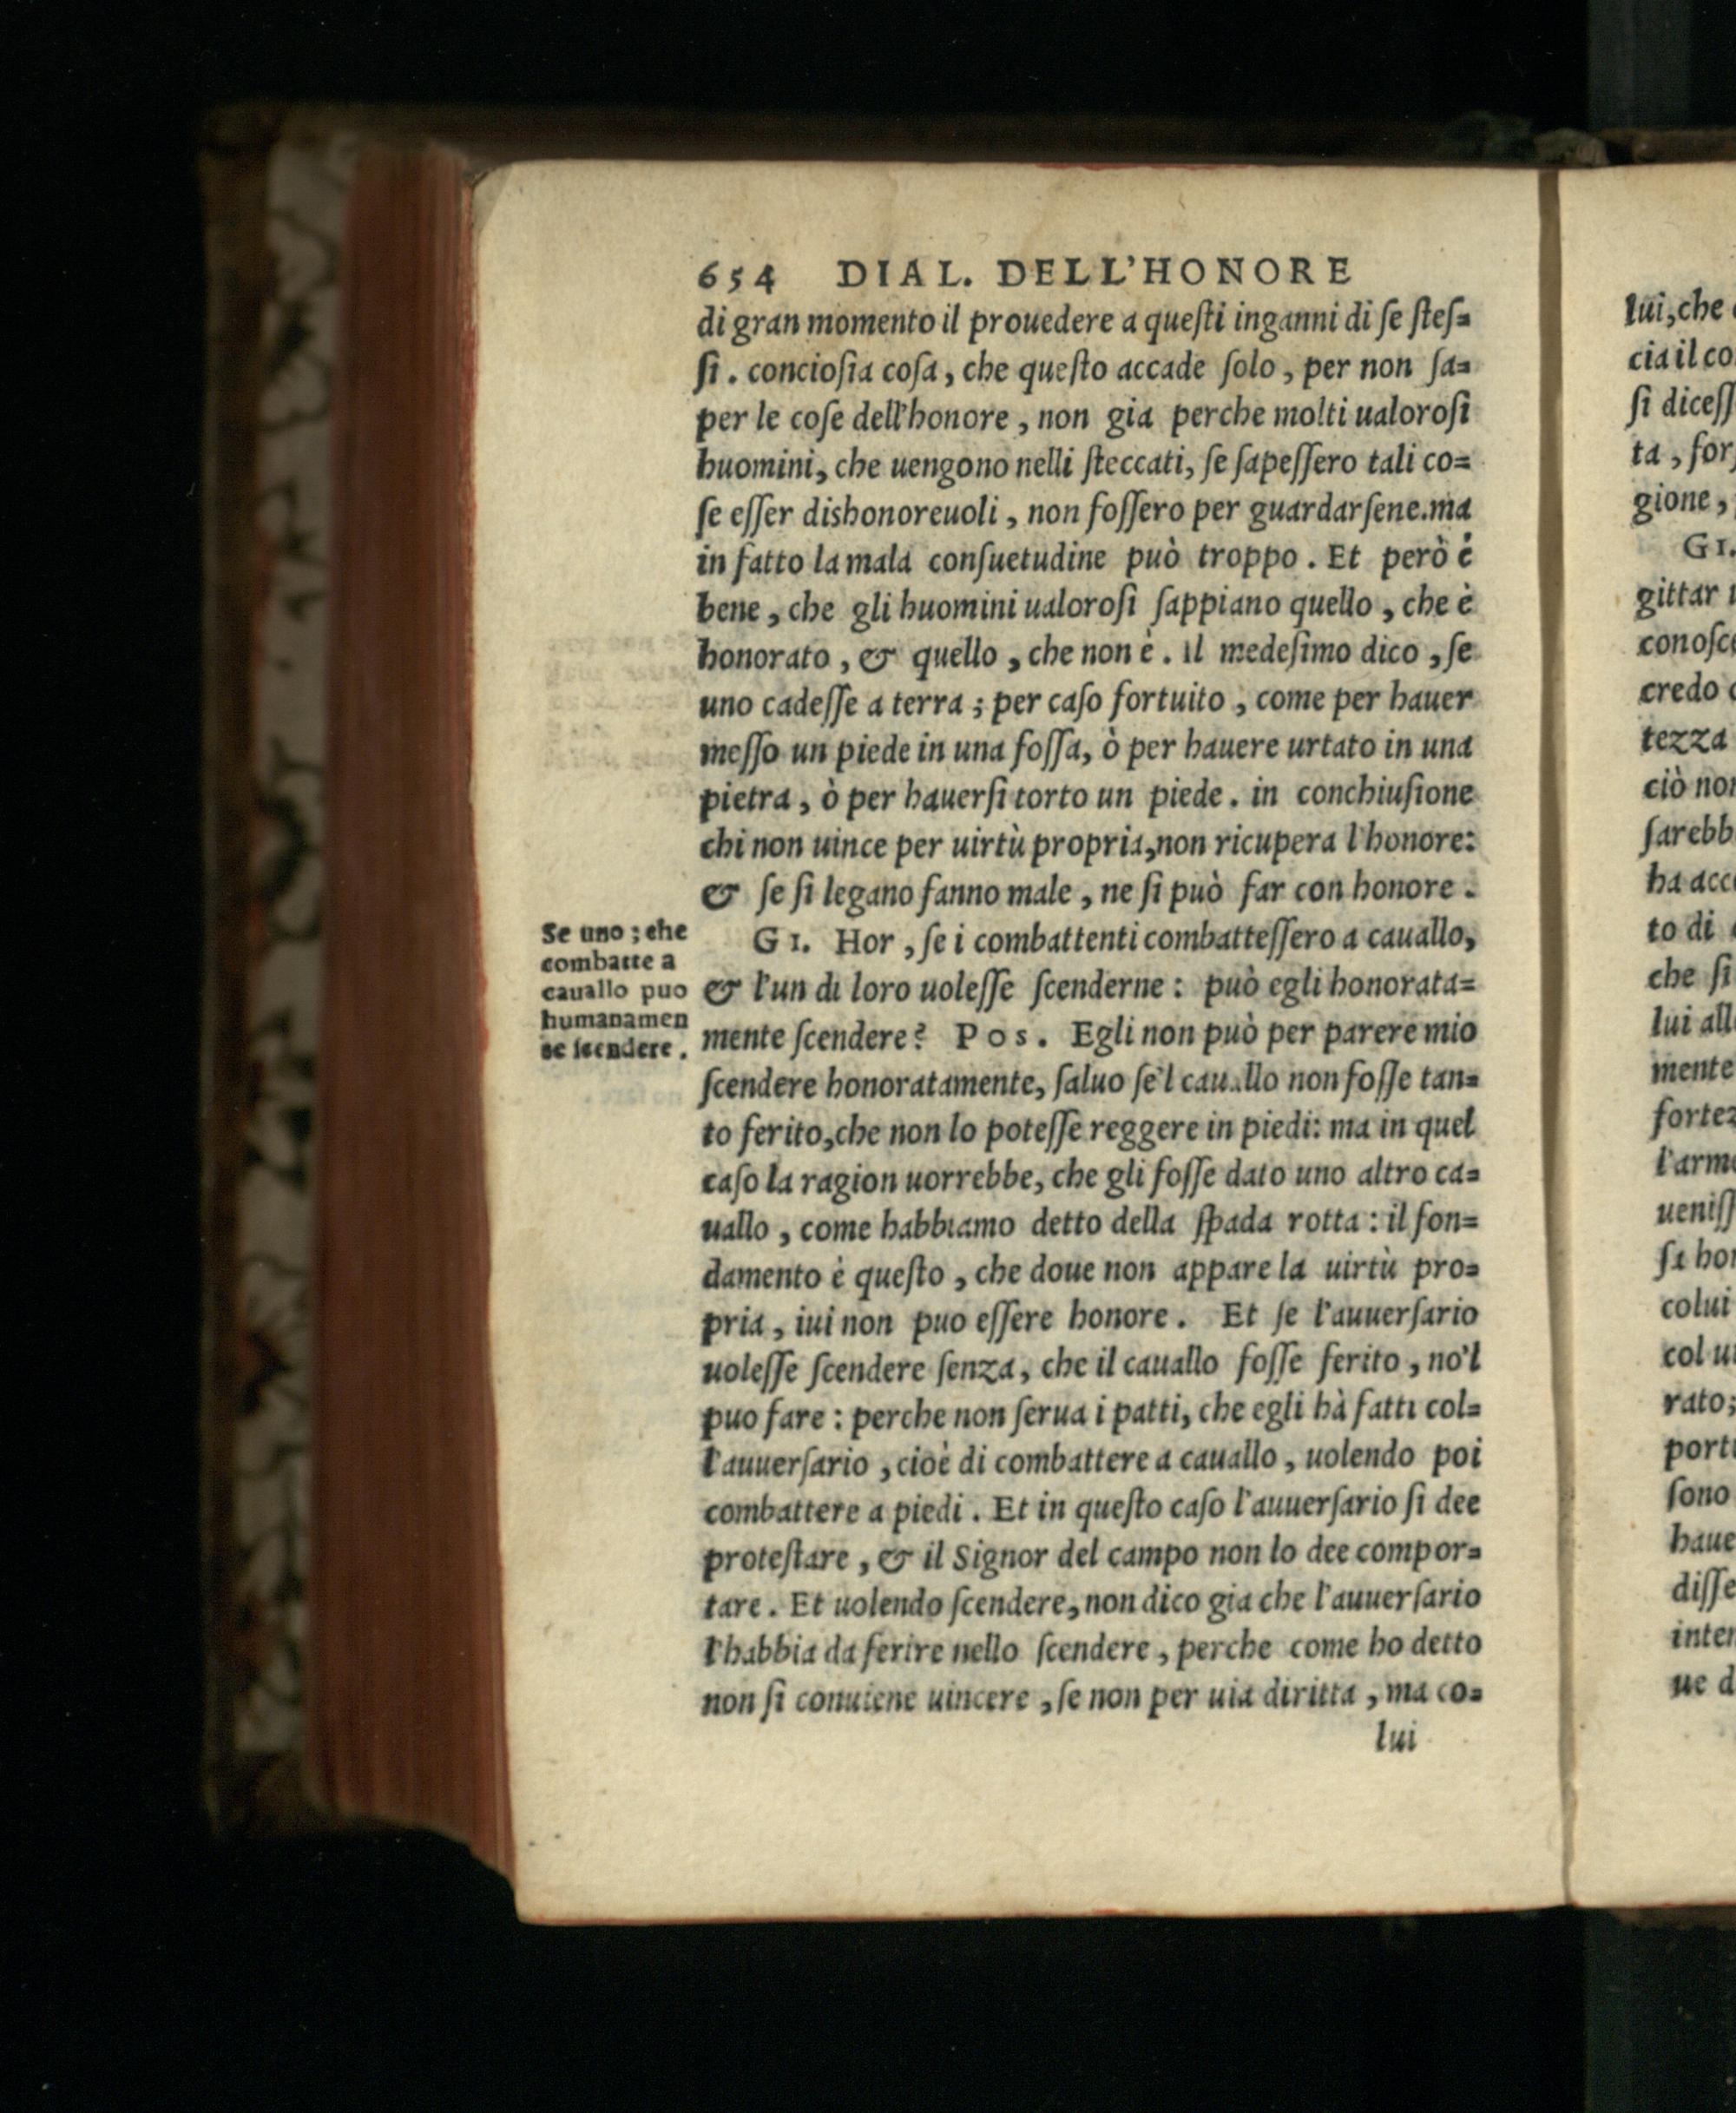 654 DIAL. DELL'HONORE
di gran momento il prouedere a queſti inganni di ſe ſteſ=
ſi. concioſia coſa, che queſto accade ſolo, per non ſa=
per le coſe dell'honore, non gia perche molti ualoroſi
huomini, che uengono nelli ſteccati, ſe ſapeſſero tali co=
ſe eſſer dishonoreuoli, non foſſero per guardarſene.ma
in fatto la mala conſuetudine può troppo. Et però è
bene, che gli huomini ualoroſi ſappiano quello, che è
honorato, & quello, che non è. Il medeſimo dico, ſe
uno cadeſſe a terra; per caſo fortuito, come per hauer
meſſo un piede in una foſſa, ò per hauere urtato in una
pietra, ò per hauerſi torto un piede. in conchiuſione
chi non uince per uirtù propria,non ricupera l'honore:
& ſe ſi legano fanno male, ne ſi può far con honore.
Se uno; che
combatte a
cauallo puo
humanamen
te ſcendere.
GI. Hor, ſe i combattenti combatteſſero a cauallo,
& l'un di loro uoleſſe ſcenderne: può egli honorata=
mente ſcendere? Pos. Egli non può per parere mio
ſcendere honoratamente, ſaluo ſe'l cauallo non foſſe tan=
to ferito,che non lo poteſſe reggere in piedi: ma in quel
caſo la ragion uorrebbe, che gli foſſe dato uno altro ca=
uallo, come habbiamo detto della ſpada rotta: il fon=
damento è queſto, che doue non appare la uirtù pro=
pria, iui non puo eſſere honore. Et ſe l'auuerſario
uoleſſe ſcendere ſenza, che il cauallo foſſe ferito, no'l
puo fare: perche non ſerua i patti, che egli hà fatti col=
l'auuerſario, cioè di combattere a cauallo, uolendo poi
combattere a piedi. Et in queſto caſo l'auuerſario ſi dee
proteſtare, & il Signor del campo non lo dee compor=
tare. Et uolendo ſcendere, non dico gia che l'auuerſario
l'habbia da ferire nello ſcendere, perche come ho detto
non ſi conuiene uincere, ſe non per uia diritta, ma co=
lui
lui,che
cia il co
ſi diceſſ
ta, for
gione,
GI.
gittar
conoſc
credo
tezza
ciò non
ſarebb
ha acc
to di
che ſi
lui all
mente
fortez
l'arm
ueniſſ
ſi ho
colui
col u
rato;
port
ſono
haue
diſſe
inter
ue d